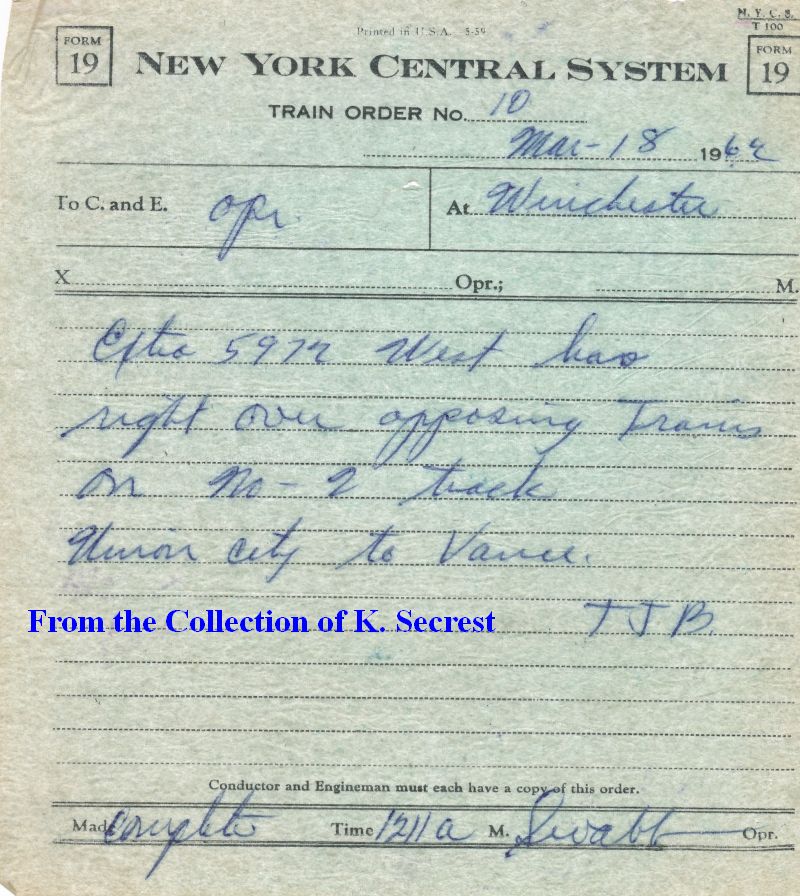 N. Y. C. S.
T 100
Printed in U.S.A. 5-59
FORM 19
NEW YORK CENTRAL SYSTEM
FORM 19
TRAIN ORDER No. 10
Mar-18 1962
To C. and E. opr. At Winchester
X Opr.; M.
Extra 5972 West has
right over opposing Trains
on No-2 track
Union city to Vance.
From the Collection of K. Secrest
TJB
Conductor and Engineman must each have a copy of this order.
Made complete Time 1211 a M. Swabb Opr.